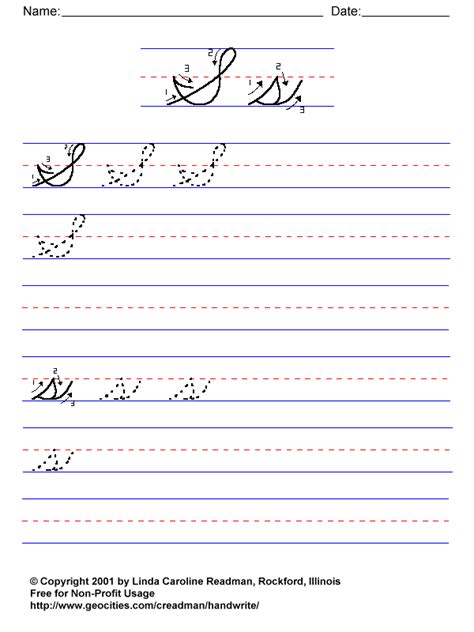 Name: Date:
1 2 3 S 1 2 3 s
1 2 3 S S S
S
1 2 3 s s s
s
© Copyright 2001 by Linda Caroline Readman, Rockford, Illinois
Free for Non-Profit Usage
http://www.geocities.com/creadman/handwrite/